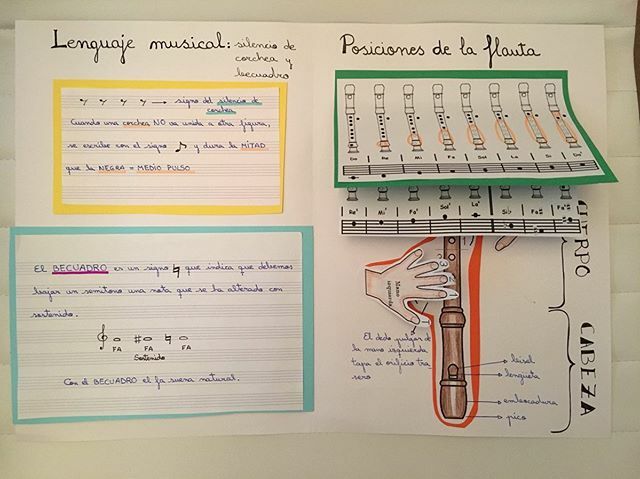 Lenguaje musical: silencio de
corchea y
becuadro
signo del silencio de
corchea
Cuando una corchea NO va unida a otra figura,
se escribe con el signo ♪ y dura la MITAD
que la NEGRA = MEDIO PULSO
El BECUADRO es un signo ♮ que indica que debemos
bajar un semitono una nota que se ha alterado con
sostenido.
FA FA FA
Sostenido
Con el BECUADRO el fa suena natural.
Posiciones de la flauta
Do Re Mi Fa Sol La Si Do'
Re' Mi' Fa' Sol' La' Si♭ Fa# Fa#'
CUERPO
CABEZA
Mano
izquierda
El dedo pulgar de
la mano izquierda
tapa el orificio tra
sero
bisel
lengüeta
embocadura
pico